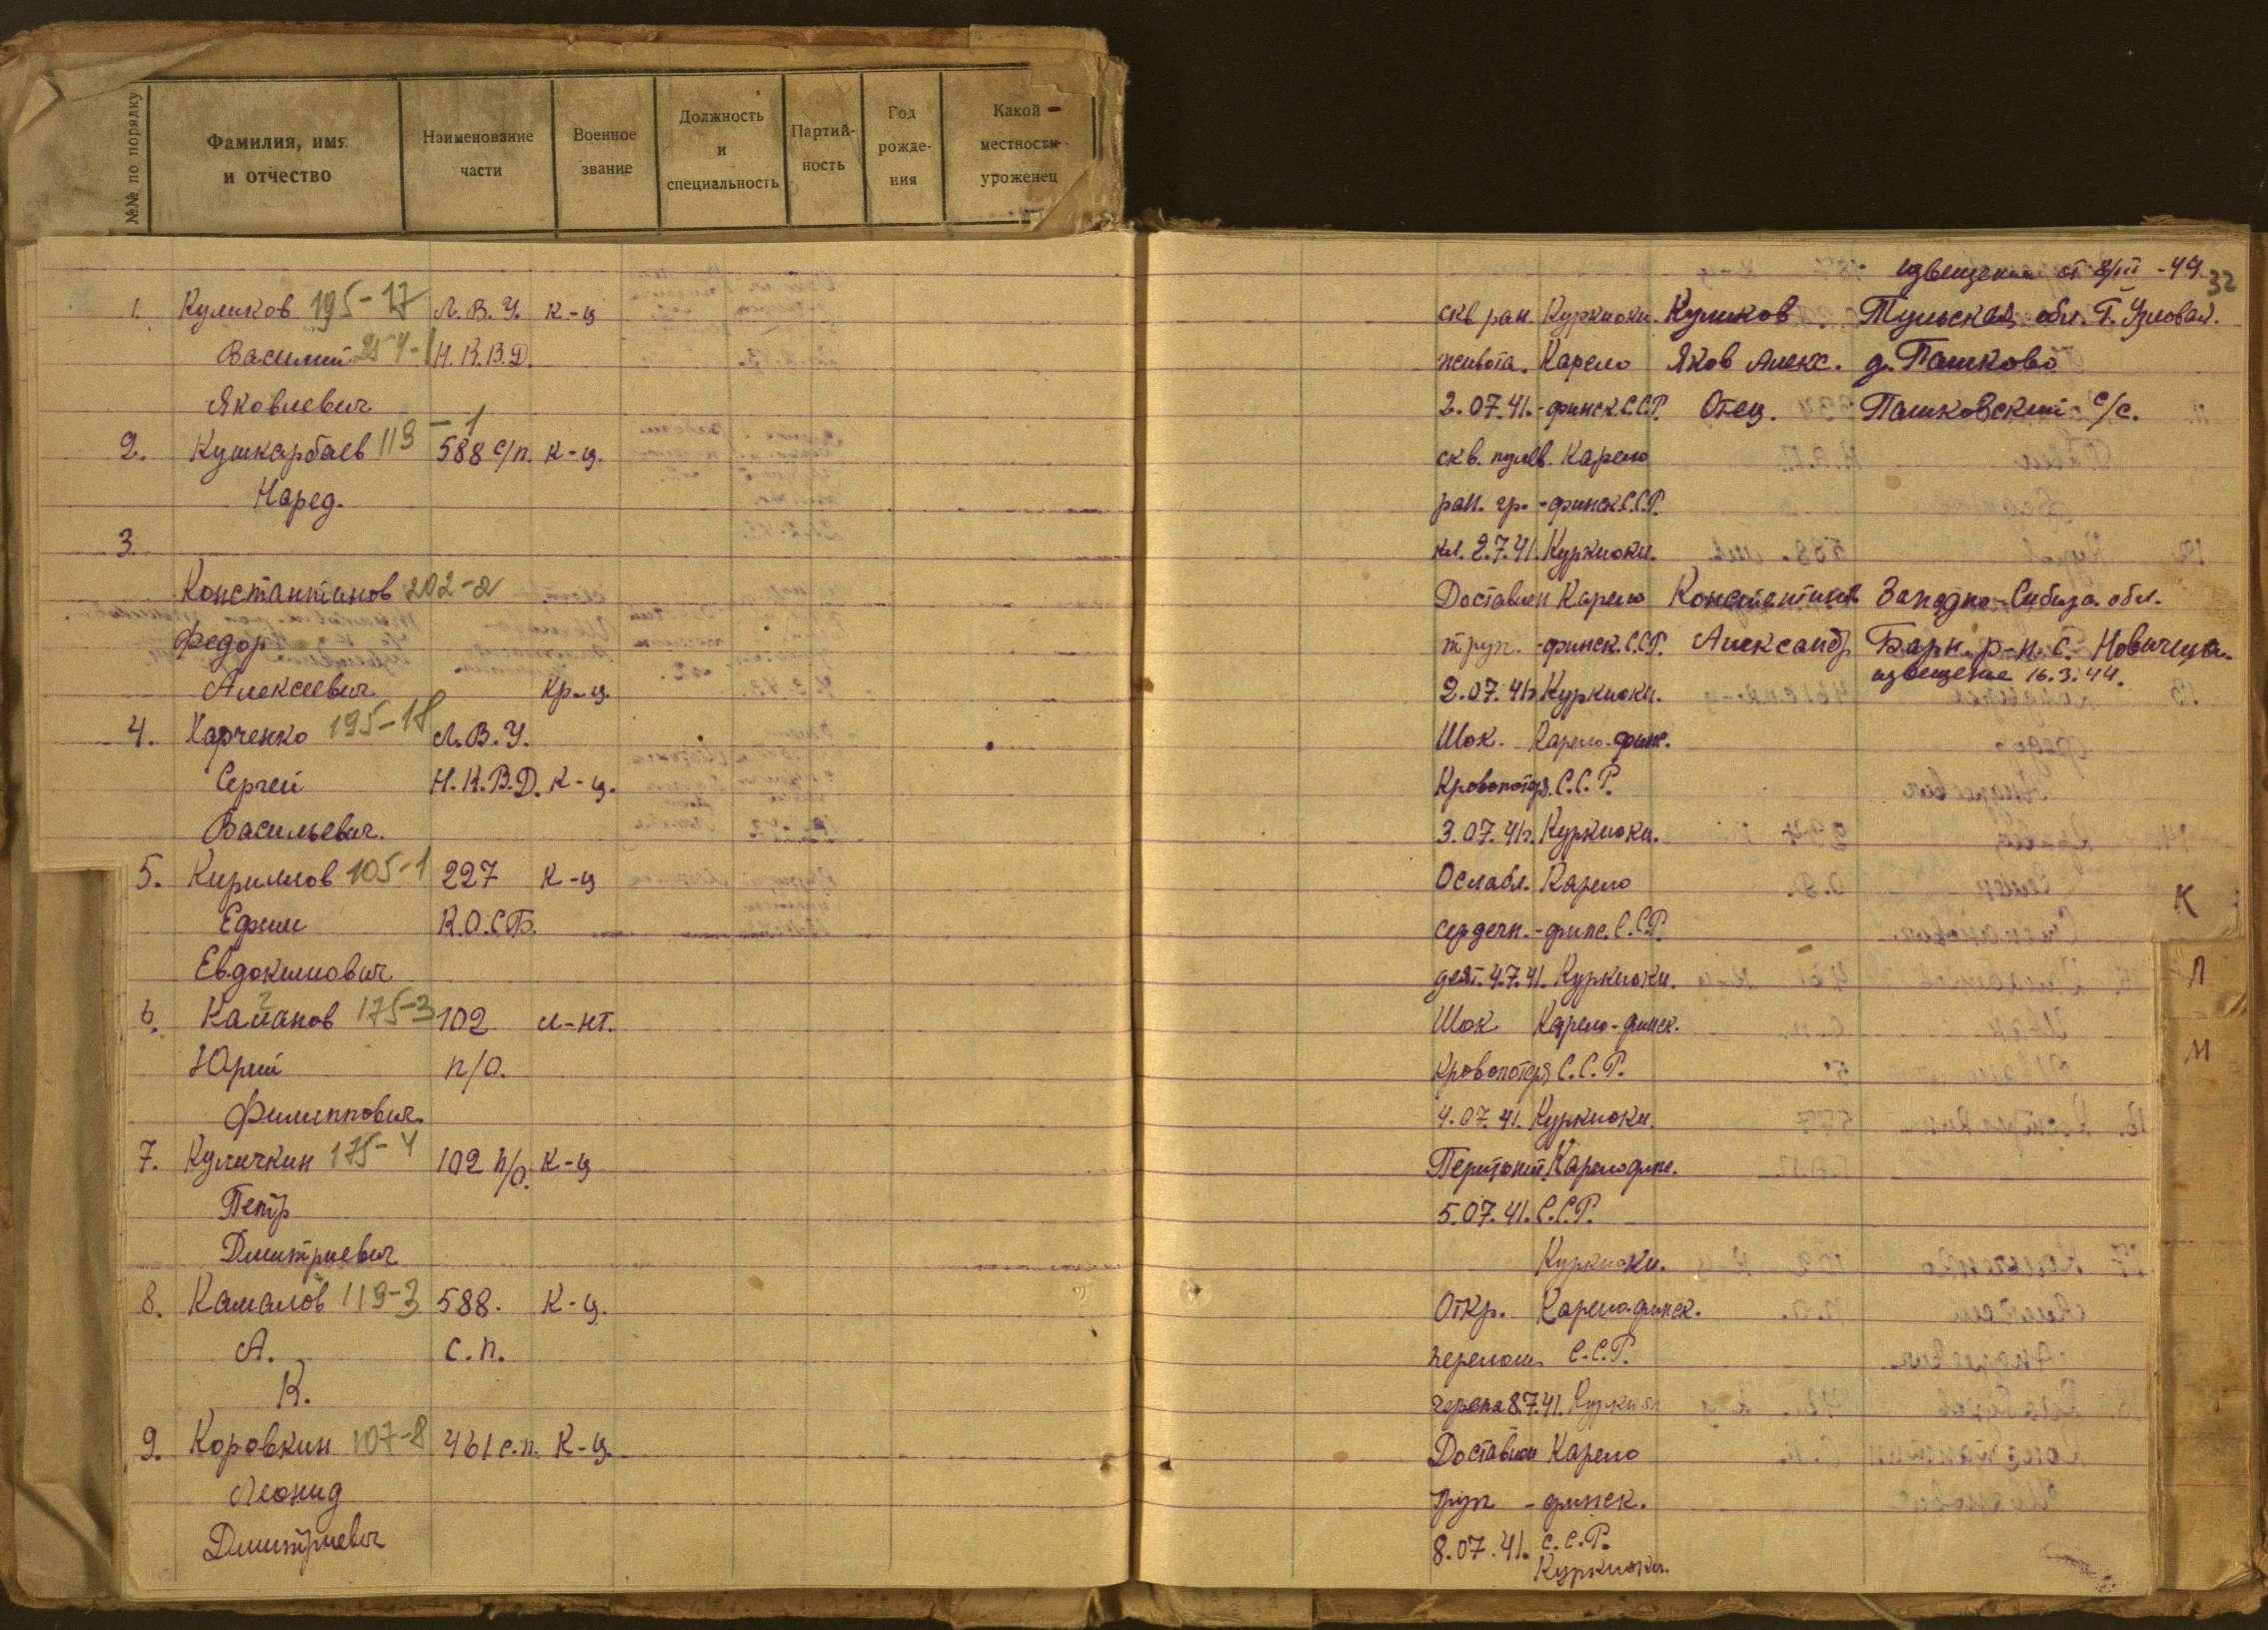 №№ по порядку
Фамилия, имя и отчество
Наименование части
Военное звание
Должность и специальность
Партий-ность
Год рожде-ния
Какой местности уроженец
извещение от 8/III -44. 32
1. Куликов 195-17 Л.В.У. к-ц скв ран. Куркиоки. Куликов Тульская обл. Г. Узловая.
Василий Н.К.В.Д. живота. Карело Яков Алекс. д. Пашково
Яковлевич 2.07.41. -финск.С.С.Р. Отец. Пашковский с/с.
2. Кушкарбаев 119-1 588 с/п. к-ц. скв. пулев. Карело
Наред. ран. гр. -финск.С.С.Р.
3. кл. 2.7.41. Куркиоки.
Константинов 202-2 Доставлен Карело Константинов Западно-Сибир. обл.
Федор труп. -финск.С.С.Р. Александр Барн. р-н. с. Новичиха.
извещение 16.3.44.
Алексеевич кр-ц. 2.07.41г. Куркиоки.
4. Харченко 195-18 Л.В.У. Шок. Карело-финс.
Сергей Н.К.В.Д. к-ц. Кровопотеря. С.С.Р.
Васильевич. 3.07.41г. Куркиоки.
5. Кириллов 105-1 227 к-ц Ослабл. Карело
Ефим К.О.С.Б. сердечн. -финс. С.С.Р.
Евдокимович деят. 4.7.41. Куркиоки. К
6. Каланов 175-3 102 л-нт. Шок Карело-финск. Л
Юрий п/о. кровопотеря С.С.Р. М
Филиппович. 4.07.41. Куркиоки.
7. Куличкин 175-4 102 п/о. к-ц Перитонит. Карелофинс.
Петр 5.07.41. С.С.Р.
Дмитриевич Куркиоки.
8. Камалов 119-3 588. к-ц. Откр. Карелофинск.
А. с.п. перелом С.С.Р.
К. черепа 8.7.41. Куркия
9. Коровкин 107-8 461 с.п. к-ц. Доставлен Карело
Леонид труп -финск.
Дмитриевич 8.07.41. С.С.Р.
Куркиоки.